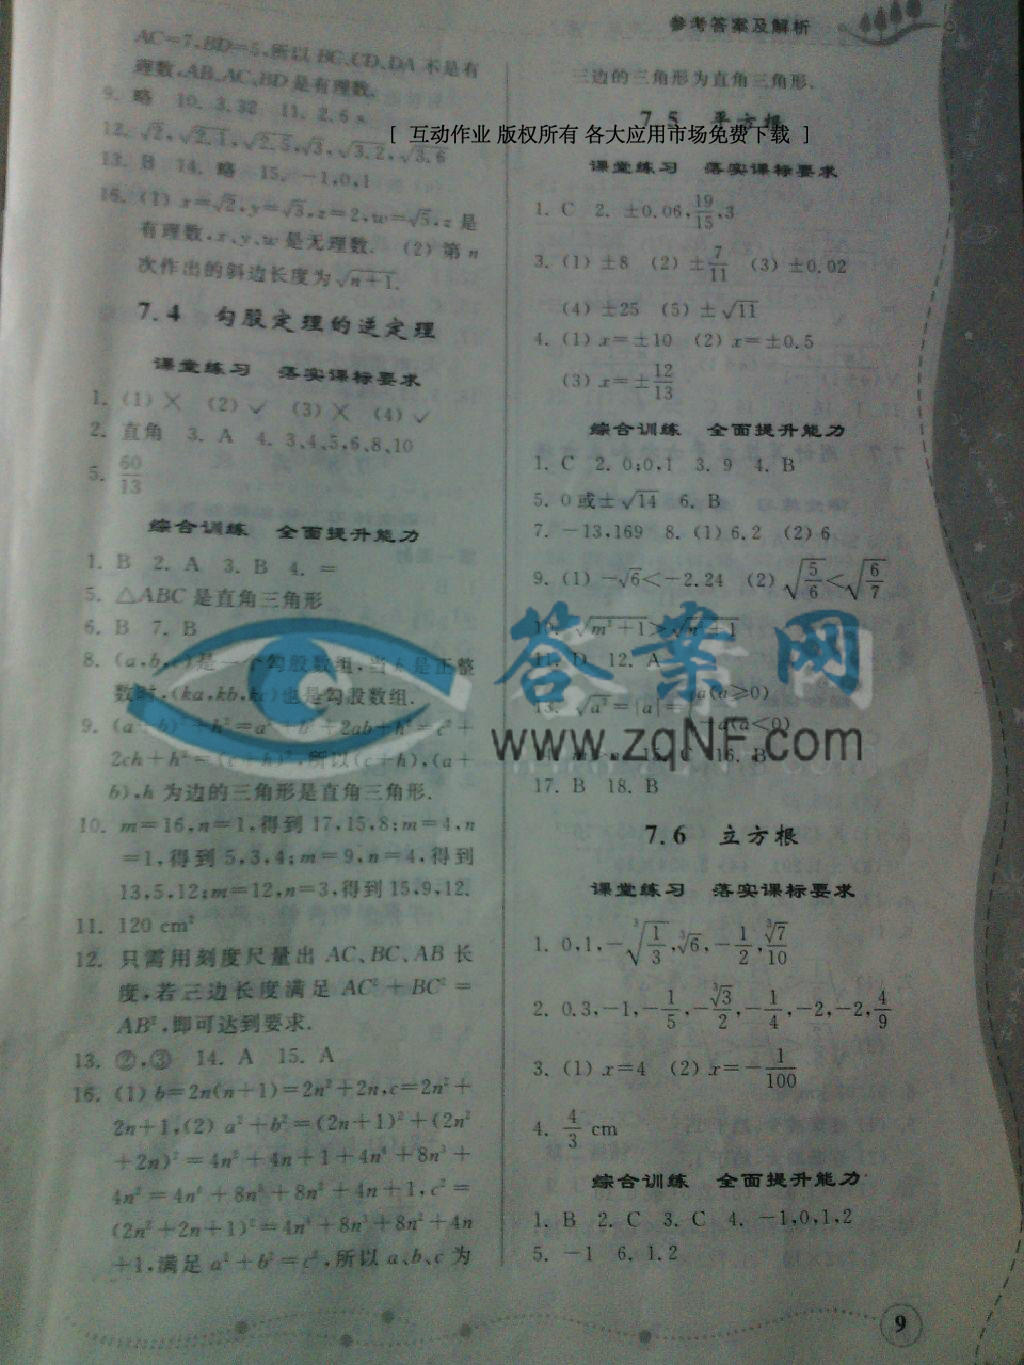 参考答案及解析
AC=7,BD=5,所以 BC、CD、DA 不是有
理数,AB、AC、BD 是有理数.
9. 略 10. 3.32 11. 2.6 s
12. √2,√2.1,√2.5,√3,√3.2,√3.6
13. B 14. 略 15. -1,0,1
16. (1) x=√2,y=√3,z=2,w=√5.z 是
有理数,x、y、w 是无理数. (2) 第 n
次作出的斜边长度为 √(n+1).
7.4 勾股定理的逆定理
课堂练习 落实课标要求
1. (1) ✕ (2) ✓ (3) ✕ (4) ✓
2. 直角 3. A 4. 3,4,5,6,8,10
5. 60/13
综合训练 全面提升能力
1. B 2. A 3. B 4. =
5. △ABC 是直角三角形
6. B 7. B
8. (a,b,c)是一个勾股数组,当 k 是正整
数时,(ka,kb,kc)也是勾股数组.
9. (a+b)²+h²=a²+b²+2ab+h²=c²+
2ch+h²=(c+h)²,所以(c+h),(a+
b),h 为边的三角形是直角三角形.
10. m=16,n=1,得到 17,15,8;m=4,n
=1,得到 5,3,4;m=9,n=4,得到
13,5,12;m=12,n=3,得到 15,9,12.
11. 120 cm²
12. 只需用刻度尺量出 AC、BC、AB 长
度,若三边长度满足 AC²+BC²=
AB²,即可达到要求.
13. ②,③ 14. A 15. A
16. (1) b=2n(n+1)=2n²+2n,c=2n²+
2n+1,(2) a²+b²=(2n+1)²+(2n²
+2n)²=4n²+4n+1+4n⁴+8n³+
4n²=4n⁴+8n³+8n²+4n+1,c²=
(2n²+2n+1)²=4n⁴+8n³+8n²+4n
+1,满足 a²+b²=c²,所以 a、b、c 为
三边的三角形为直角三角形.
7.5 平方根
[ 互动作业 版权所有 各大应用市场免费下载 ]
课堂练习 落实课标要求
1. C 2. ±0.06,19/15,3
3. (1) ±8 (2) ±7/11 (3) ±0.02
(4) ±25 (5) ±√11
4. (1) x=±10 (2) x=±0.5
(3) x=±12/13
综合训练 全面提升能力
1. C 2. 0;0,1 3. 9 4. B
5. 0 或±√14 6. B
7. -13,169 8. (1) 6.2 (2) 6
9. (1) -√6<-2.24 (2) √(5/6)<√(6/7)
10. √(m²+1)>√(n²+1)
11. D 12. A
13. √a²=|a|= a(a≥0)
-a(a<0)
16. B
17. B 18. B
答案网
www.zqNF.com
7.6 立方根
课堂练习 落实课标要求
1. 0,1,-∛(1/3),∛6,-1/2,∛7/10
2. 0.3,-1,-1/5,-∛3/2,-1/4,-2,-2,4/9
3. (1) x=4 (2) x=-1/100
4. 4/3 cm
综合训练 全面提升能力
1. B 2. C 3. C 4. -1,0,1,2
5. -1 6. 1.2
9